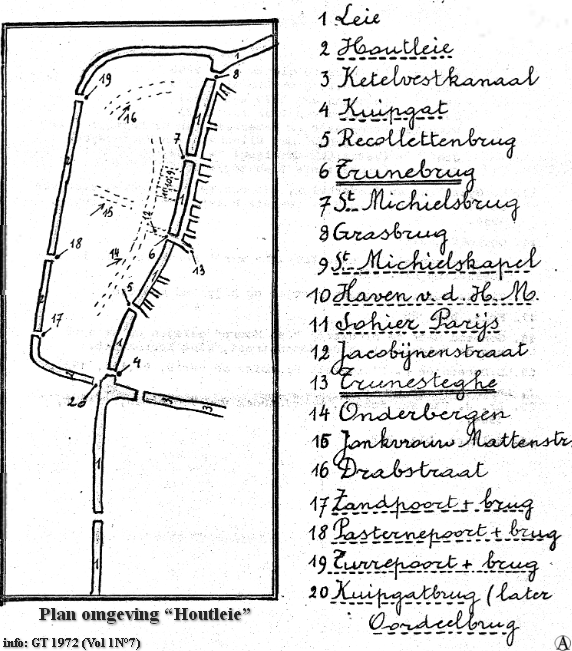 1 Leie
2 Houtleie
3 Ketelvestkanaal
4 Kuipgat
5 Recollettenbrug
6 Trunebrug
7 St Michielsbrug
8 Grasbrug
9 St Michielskapel
10 Haven v. d. H. M.
11 Sohier Parijs
12 Jacobijnenstraat
13 Trunesteghe
14 Onderbergen
15 Jonkvrouw Mattenstr.
16 Drabstraat
17 Zandpoort + brug
18 Pasternepoort + brug
19 Turrepoort + brug
20 Kuipgatbrug (later
Oordeelbrug
1
8
19
16
7
1
15
12
1
14
6
13
18
5
17
1
4
20
3
3
1
1
Plan omgeving “Houtleie”
info: GT 1972 (Vol 1N°7)
A